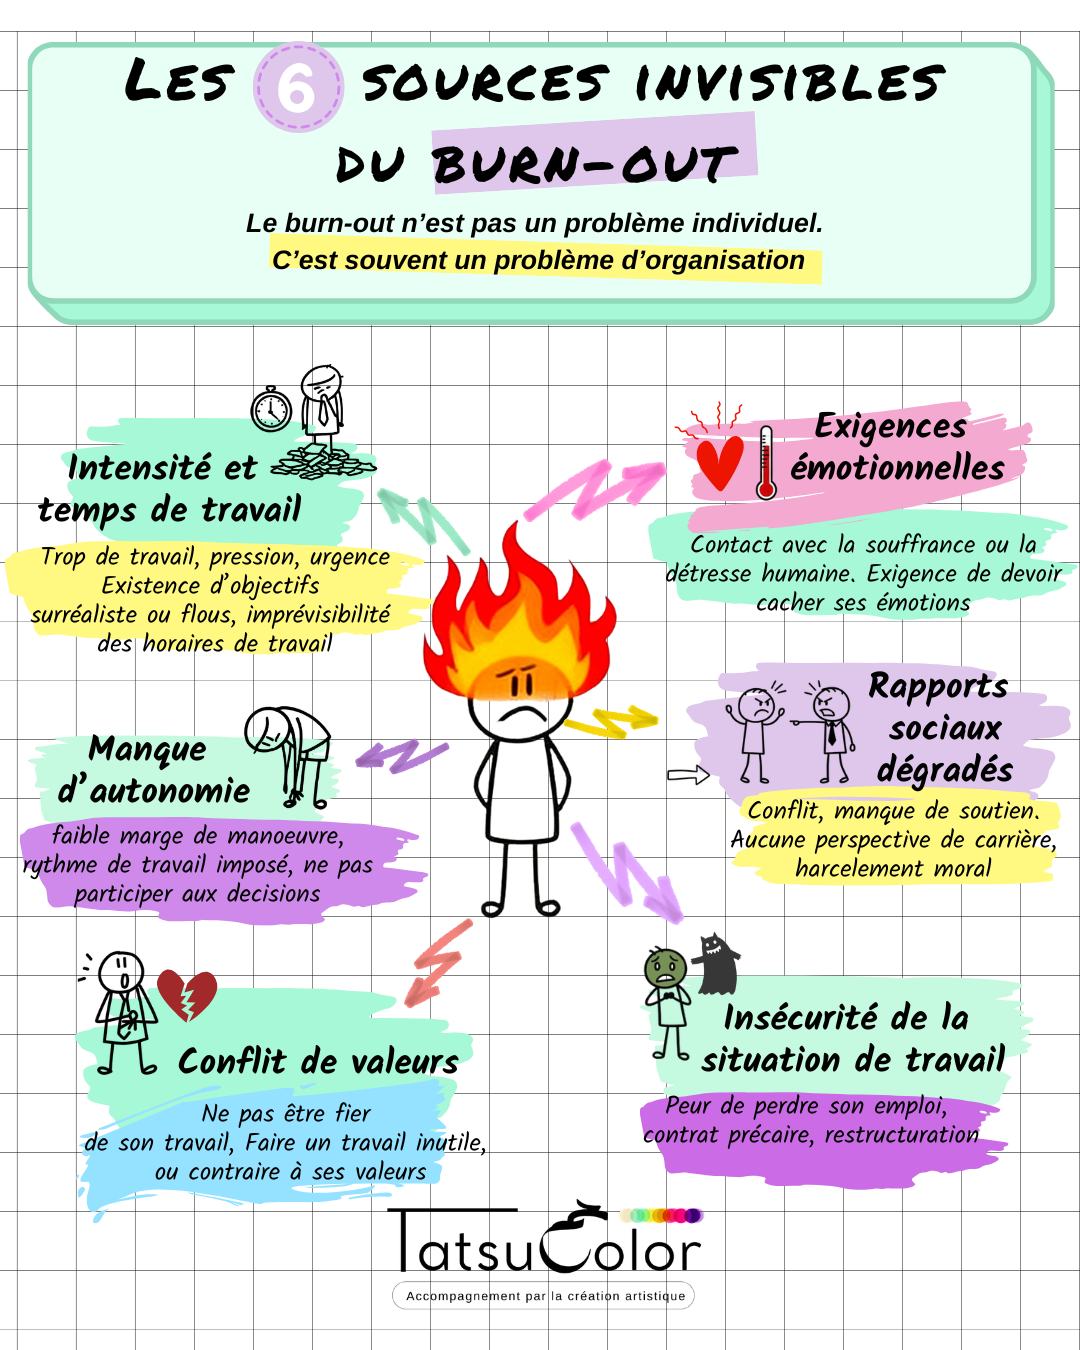 Les 6 sources invisibles
du burn-out
Le burn-out n'est pas un problème individuel.
C'est souvent un problème d'organisation
Intensité et
temps de travail
Trop de travail, pression, urgence
Existence d'objectifs
surréaliste ou flous, imprévisibilité
des horaires de travail
Exigences
émotionnelles
Contact avec la souffrance ou la
détresse humaine. Exigence de devoir
cacher ses émotions
Manque
d'autonomie
faible marge de manoeuvre,
rythme de travail imposé, ne pas
participer aux decisions
Rapports
sociaux
dégradés
Conflit, manque de soutien.
Aucune perspective de carrière,
harcelement moral
Conflit de valeurs
Ne pas être fier
de son travail, Faire un travail inutile,
ou contraire à ses valeurs
Insécurité de la
situation de travail
Peur de perdre son emploi,
contrat précaire, restructuration
TatsuColor
Accompagnement par la création artistique